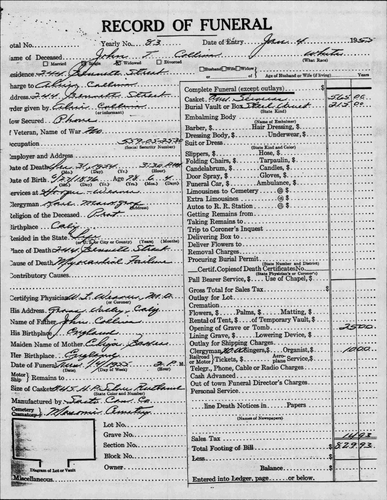 RECORD OF FUNERAL
Total No. Yearly No. 83 Date of Entry Jan. 4 1955
Name of Deceased John T. Collins White
Married Widowed Divorced (What Race)
Husband Wife Widow Age of Husband or Wife (if living) Years
Residence 244 Bennett Street
Charge to Collins
Address 244 Bennett Street
Order given by Collins
(or informant)
How Secured Phone
If Veteran, Name of War No
Occupation 559-05-2570
Employer and Address
Date of Death Dec 31, 1954 3:30 P.M.
Date of Birth 9/27/1876 Age 78 - 3 - 4
Services at
Clergyman
Religion of the Deceased Prot
Birthplace Caly
Resided in the State Life
(or City or County) (Years) (Months)
Place of Death 244 Bennett Street
Cause of Death Myocardial Failure
Contributory Causes
Certifying Physician W. L. Weaver M.D.
His Address Grass Valley, Caly
Name of Father John Collins
His Birthplace England
Maiden Name of Mother
Her Birthplace England
Date of Funeral 1955 2 P.M.
(Date) (Day of Week) (Hour)
Motor
Ship Remains to
Size of Casket
(State Color and Number)
Manufactured by Co.
Cemetery
Crematory Masonic Cemetery
Lot No.
Grave No.
Section No.
Block No.
Owner
Diagram of Lot or Vault
Miscellaneous
Complete Funeral (except outlays) $
Casket 565 00
Burial Vault or Box 215 00
(State Kind)
Embalming Body
(Name of Embalmer)
Barber, Hair Dressing,
Dressing Body, Underwear,
Suit or Dress
(State Kind and Color)
Slippers, Hose,
Folding Chairs, Tarpaulin,
Candelabrum, Candles,
Door Spray, Gloves,
Funeral Car, Ambulance,
Limousines to Cemetery @ $
Extra Limousines @ $
Autos to R. R. Station @ $
Getting Remains from
Taking Remains to
Trip to Coroner's Inquest
Delivering Box to
Deliver Flowers to
Removal Charges
Procuring Burial Permit
(State Number and District)
Certif. Copies of Death Certificates No.
(State Physician's or Coroner's)
Pall Bearer Service, Use of Chapel, $
Gross Total for Sales Tax
Outlay for Lot
Cremation
Flowers, $ Palms, $ Matting, $
Rental of Tent, $ of Temporary Vault, $
Opening of Grave or Tomb 25 00
Lining Grave, $ Lowering Device, $
Outlay for Shipping Charges
Clergyman Singers, $ Organist, $ 10 00
Railroad
or Motor Tickets, $ Aero-
Service, $
Telegr., Phone, Cable or Radio Charges
Cash Advanced
Out of town Funeral Director's Charges
Personal Service
line Death Notices in Papers
(Names of Newspapers)
Sales Tax 14 93
Total Footing of Bill $ 829 93
Less $
Balance $
Entered into Ledger, page or below